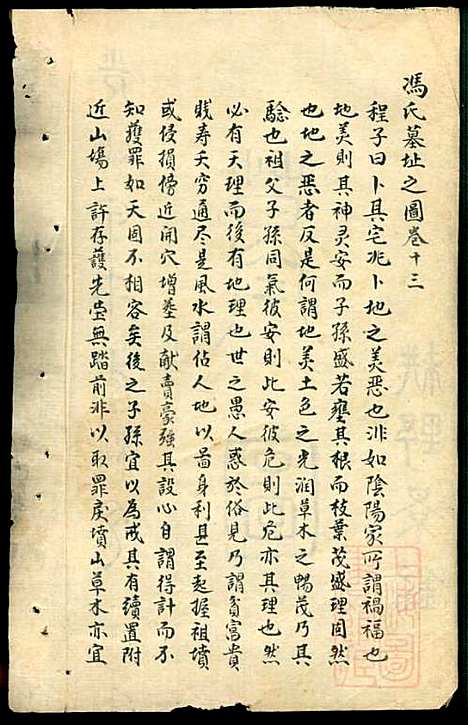 馮氏墓址之圖卷十三
程子曰卜其宅兆卜地之美惡也非如陰陽家所謂禍福也
地美則其神灵安而子孫盛若壅其根而枝葉茂盛理固然
也地之惡者反是何謂地美土色之光润草木之暢茂乃其
騐也祖父子孫同氣彼安則此安彼危則此危亦其理也然
必有天理而後有地理也世之愚人惑於俗見乃謂貧富貴
賎寿夭穷通尽是風水謂佔人地以啚身利甚至起握祖墳
或侵損傍近開穴增塟及献賣豪強其設心自謂得計而不
知獲罪如天固不相容矣後之子孫宜以為戒其有續置附
近山塲上許存護先塋無踏前非以取罪戾墳山草木亦宜